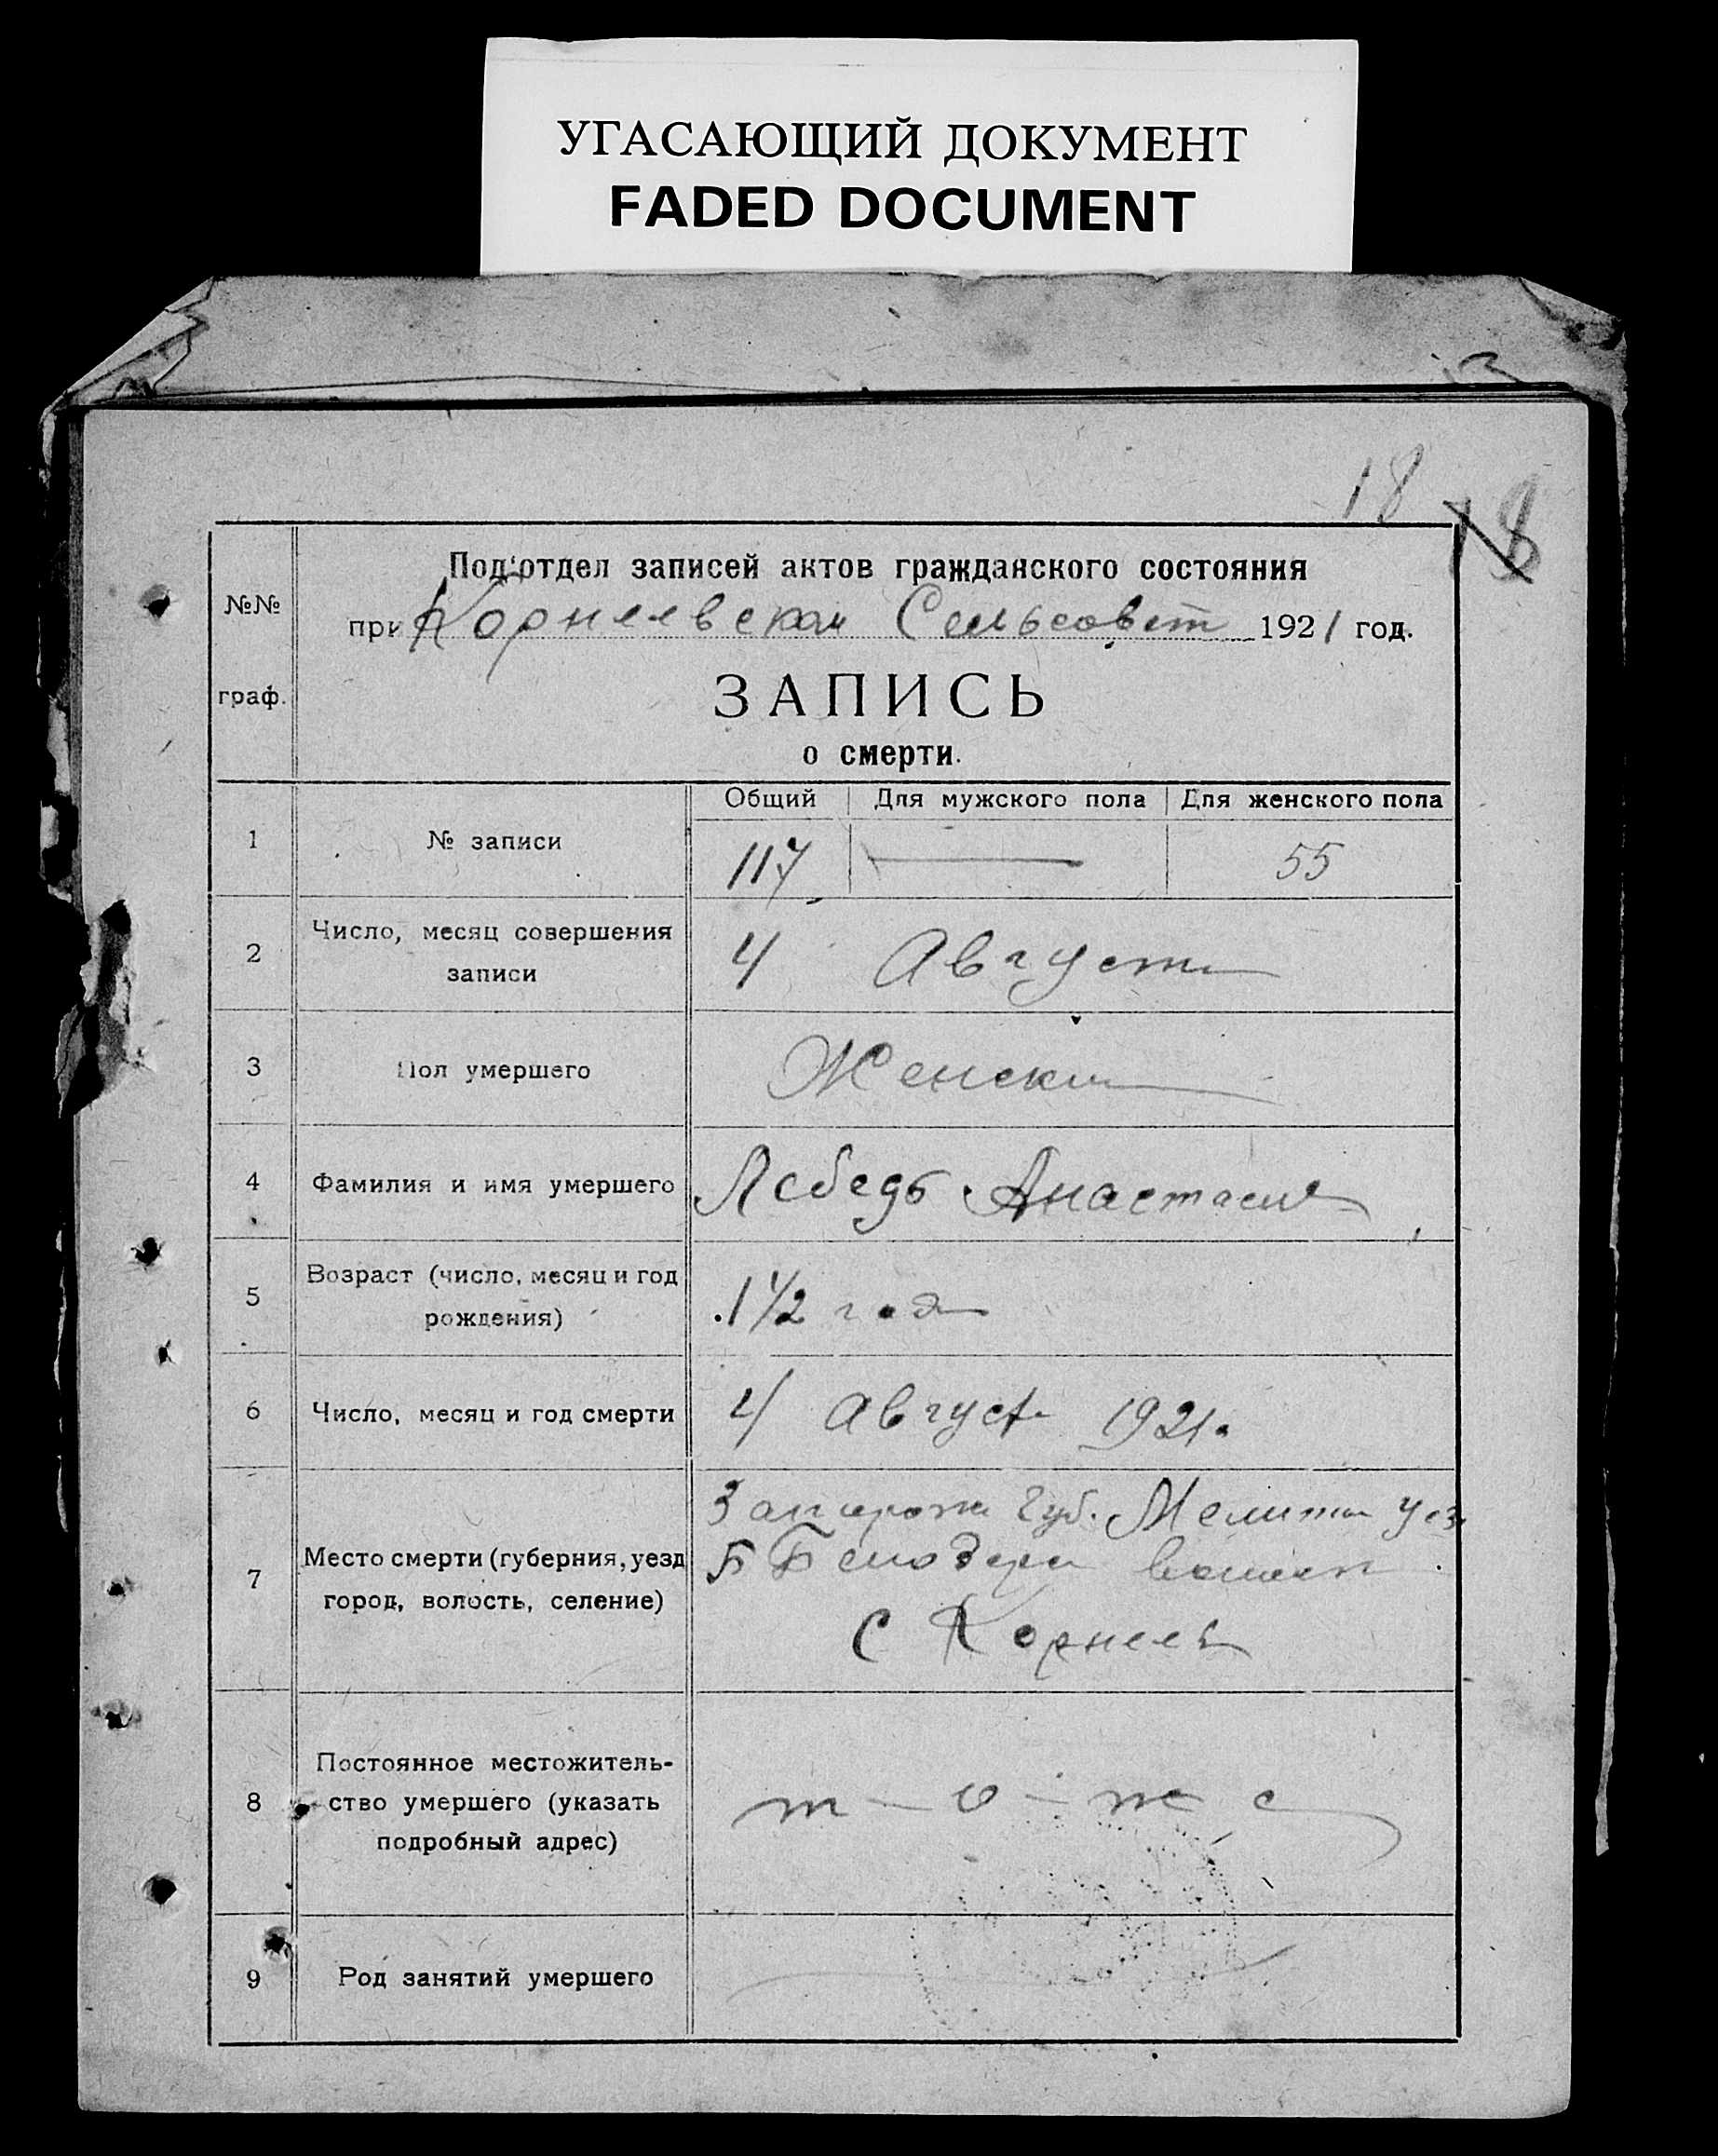 УГАСАЮЩИЙ ДОКУМЕНТ
FADED DOCUMENT
18 18
№№ граф.
Под'отдел записей актов гражданского состояния
при Корнеевском Сельсовет 1921 год.
ЗАПИСЬ
о смерти.
Общий Для мужского пола Для женского пола
1 № записи 117 — 55
2 Число, месяц совершения
записи
4 Август
3 Пол умершего Женски
4 Фамилия и имя умершего Лебедь Анастасия
5 Возраст (число, месяц и год
рождения)
1 1/2 год
6 Число, месяц и год смерти 4 Август 1921.
7 Место смерти (губерния, уезд
город, волость, селение)
Запорож Губ. Мелитоп Уез.
Б Белозер
С Корнеев
8 Постоянное местожитель-
ство умершего (указать
подробный адрес)
т-о-же
9 Род занятий умершего